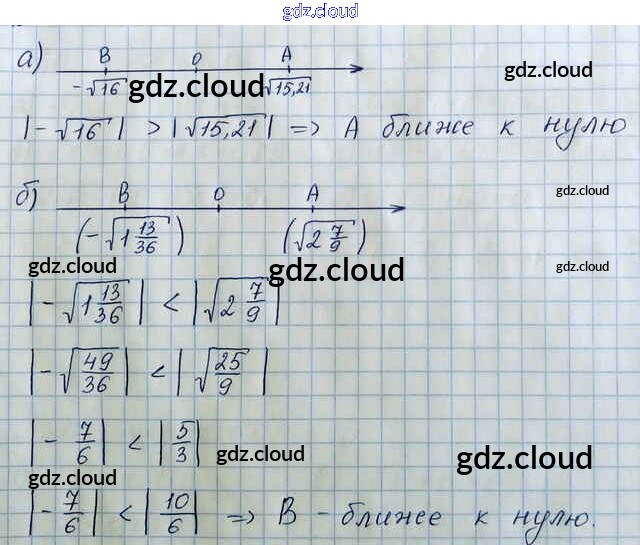 gdz.cloud
а) B O A
-√16 gdz.cloud √15,21 gdz.cloud
|-√16| > |√15,21| => A ближе к нулю
б) B O A gdz.cloud
(-√1 13/36) (√2 7/9)
gdz.cloud gdz.cloud gdz.cloud
|-√1 13/36| < |√2 7/9|
|-√49/36| < |√25/9|
|-7/6| < |5/3| gdz.cloud gdz.cloud
gdz.cloud
|-7/6| < |10/6| => B - ближе к нулю.